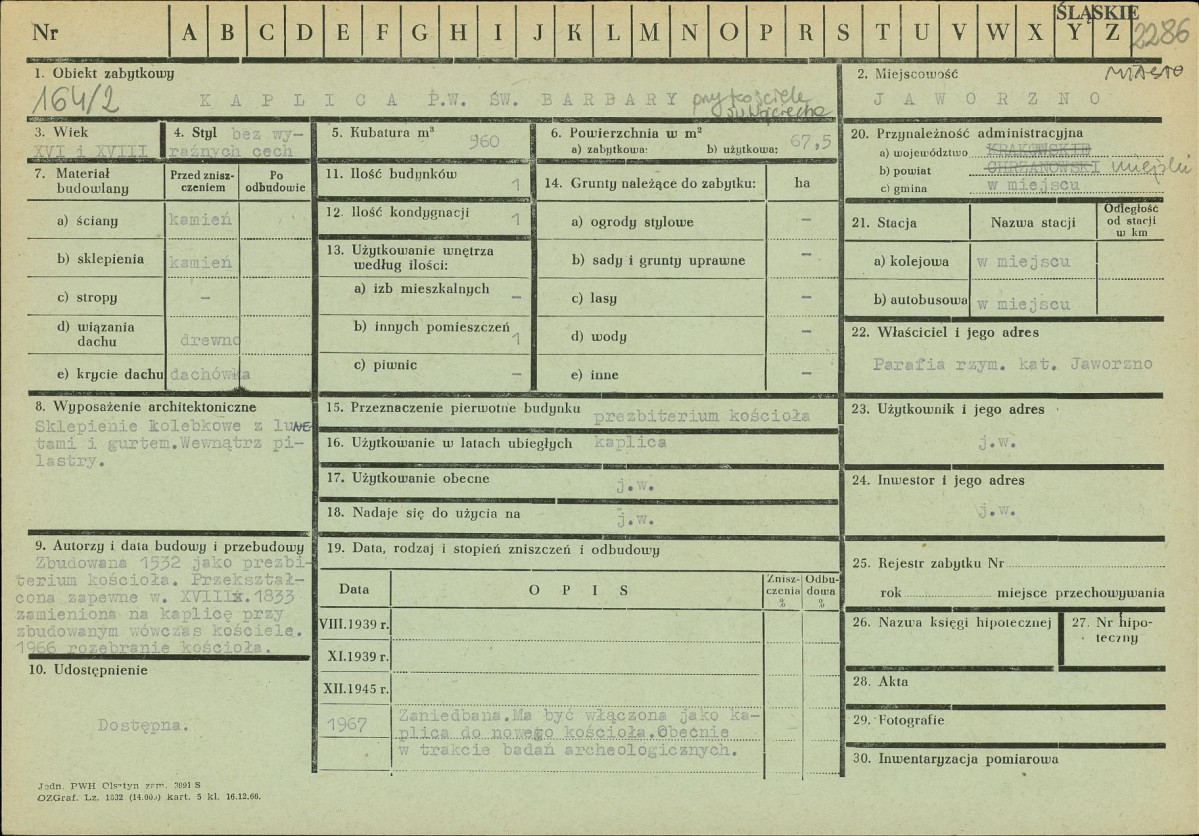 Nr A B C D E F G H I J K L M N O P R S T U V W X Y Z ŚLĄSKIE 2286
1. Obiekt zabytkowy
164/2 KAPLICA P.W. ŚW. BARBARY przy kościele
św. Wojciecha
2. Miejscowość MIASTO
JAWORZNO
3. Wiek
XVI i XVIII
4. Styl bez wy-
raźnych cech
5. Kubatura m³ 960
6. Powierzchnia w m²
a) zabytkowa: b) użytkowa: 67,5
7. Materiał budowlany
Przed znisz-
czeniem
Po
odbudowie
a) ściany kamień
b) sklepienia kamień
c) stropy –
d) wiązania
dachu drewno
e) krycie dachu dachówka
11. Ilość budynków 1
12. Ilość kondygnacji 1
13. Użytkowanie wnętrza
według ilości:
a) izb mieszkalnych –
b) innych pomieszczeń 1
c) piwnic –
14. Grunty należące do zabytku: ha
a) ogrody stylowe –
b) sady i grunty uprawne –
c) lasy –
d) wody –
e) inne –
20. Przynależność administracyjna
a) województwo KRAKOWSKIE
b) powiat CHRZANOWSKI miejski
c) gmina w miejscu
21. Stacja Nazwa stacji
Odległość
od stacji
w km
a) kolejowa w miejscu
b) autobusowa w miejscu
22. Właściciel i jego adres
Parafia rzym. kat. Jaworzno
8. Wyposażenie architektoniczne
Sklepienie kolebkowe z luNE-
tami i gurtem.Wewnątrz pi-
lastry.
15. Przeznaczenie pierwotne budynku prezbiterium kościoła
16. Użytkowanie w latach ubiegłych kaplica
17. Użytkowanie obecne j.w.
18. Nadaje się do użycia na j.w.
23. Użytkownik i jego adres
j.w.
24. Inwestor i jego adres
j.w.
9. Autorzy i data budowy i przebudowy
Zbudowana 1532 jako prezbi-
terium kościoła. Przekształ-
cona zapewne w. XVIII.1833
zamieniona na kaplicę przy
zbudowanym wówczas kościele.
1966 rozebranie kościoła.
10. Udostępnienie
Dostępna.
19. Data, rodzaj i stopień zniszczeń i odbudowy
Data OPIS
Znisz-
czenia
%
Odbu-
dowa
%
VIII.1939 r.
XI.1939 r.
XII.1945 r.
1967 Zaniedbana.Ma być włączona jako ka-
plica do nowego kościoła.Obecnie
w trakcie badań archeologicznych.
25. Rejestr zabytku Nr
rok miejsce przechowywania
26. Nazwa księgi hipotecznej
27. Nr hipo-
teczny
28. Akta
29. Fotografie
30. Inwentaryzacja pomiarowa
Jedn. PWH Olsztyn zam. 3091 S
OZGraf. Lz. 1332 (14.000) kart. 5 kl. 16.12.66.